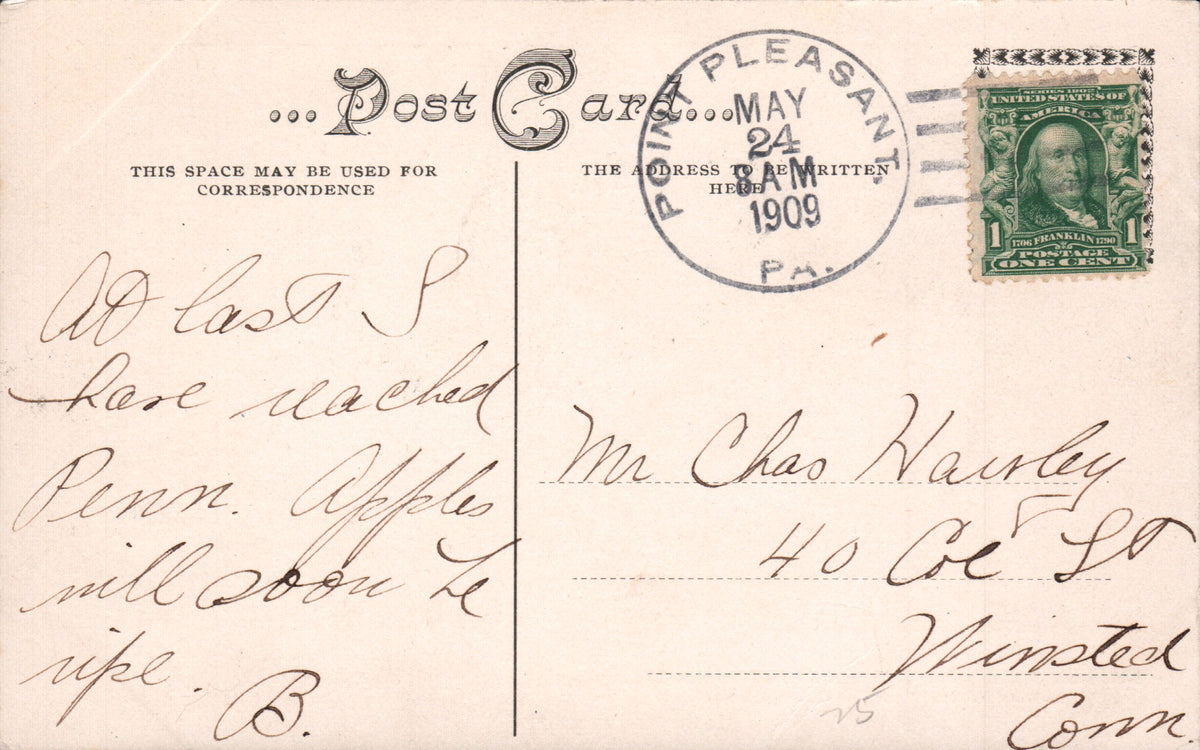 ...Post Card...
THIS SPACE MAY BE USED FOR
CORRESPONDENCE
THE ADDRESS TO BE WRITTEN
HERE
POINT PLEASANT,
MAY
24
8 AM
1909
PA.
SERIES 1902
UNITED STATES OF
AMERICA
1 1706 FRANKLIN 1790 1
POSTAGE
ONE CENT
At last I
have reached
Penn. Apples
will soon be
ripe.
B.
Mr Chas Hawley
40 Coe St
Winsted
Conn.
25